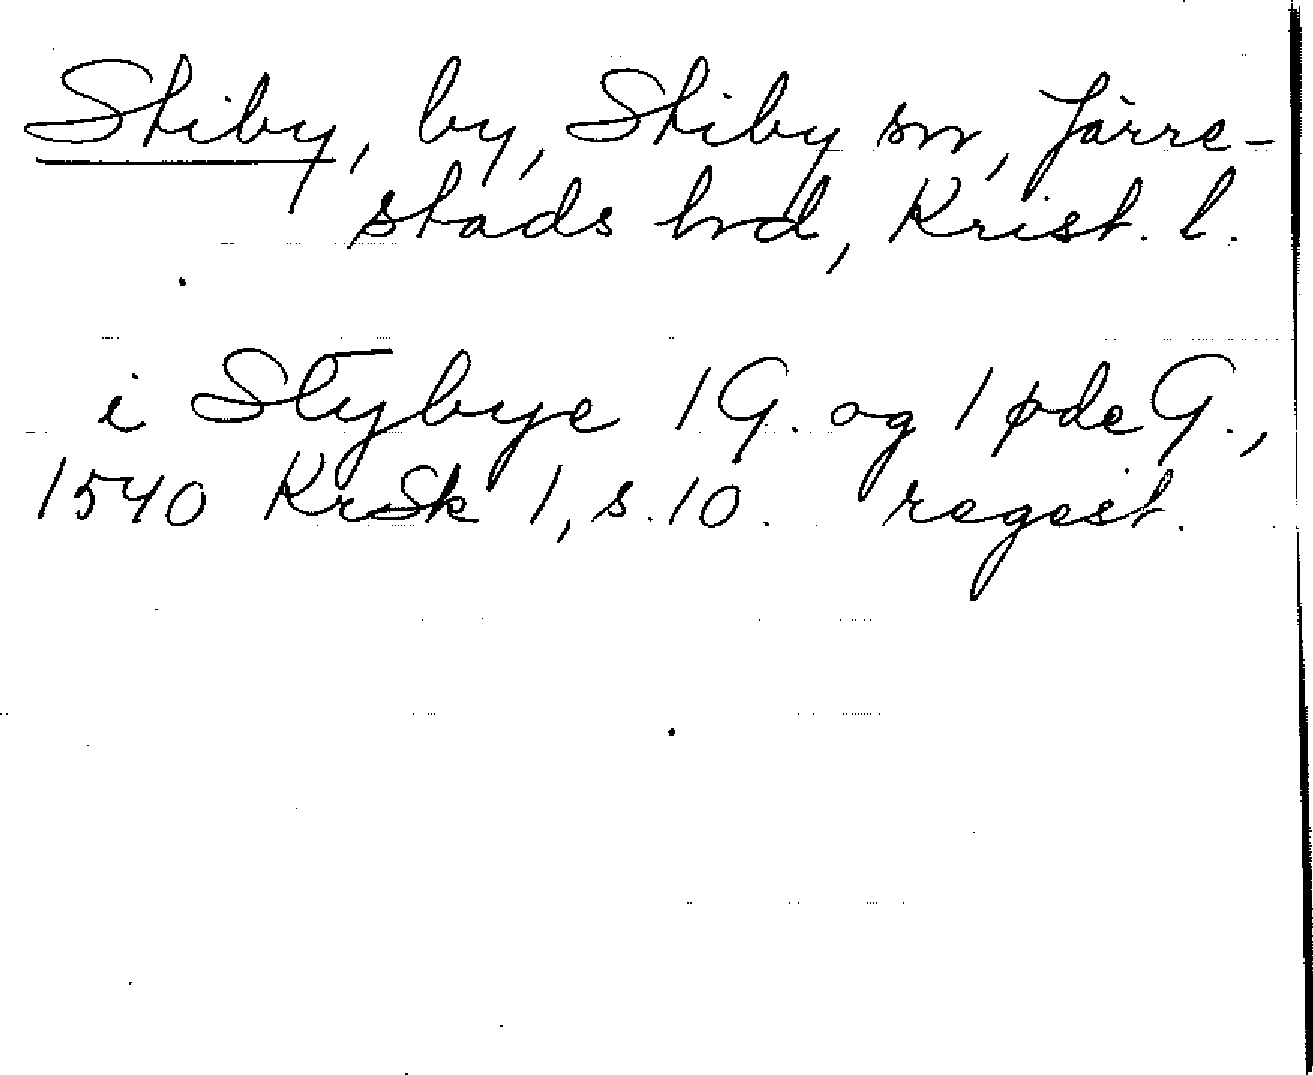 Stiby, by, Stiby sn, Järre-
stads hrd, Krist. l.
i Stybye 1 G. og 1 øde G.,
1540 KrSk 1, s. 10. regest.